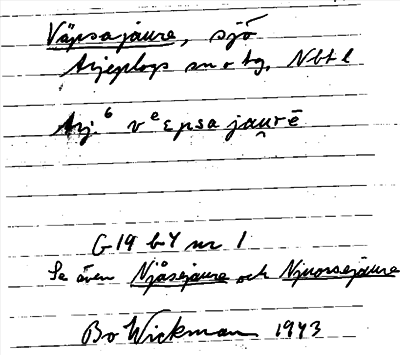 Väpsajaure, sjö
Arjeplogs sn o tg, Nbt l
Arj. 6 vᵉεpsa jau̯rē
G 19 b Y nr 1
Se även Njåsejaure och Njuorsejaure
Bo Wickman 1943